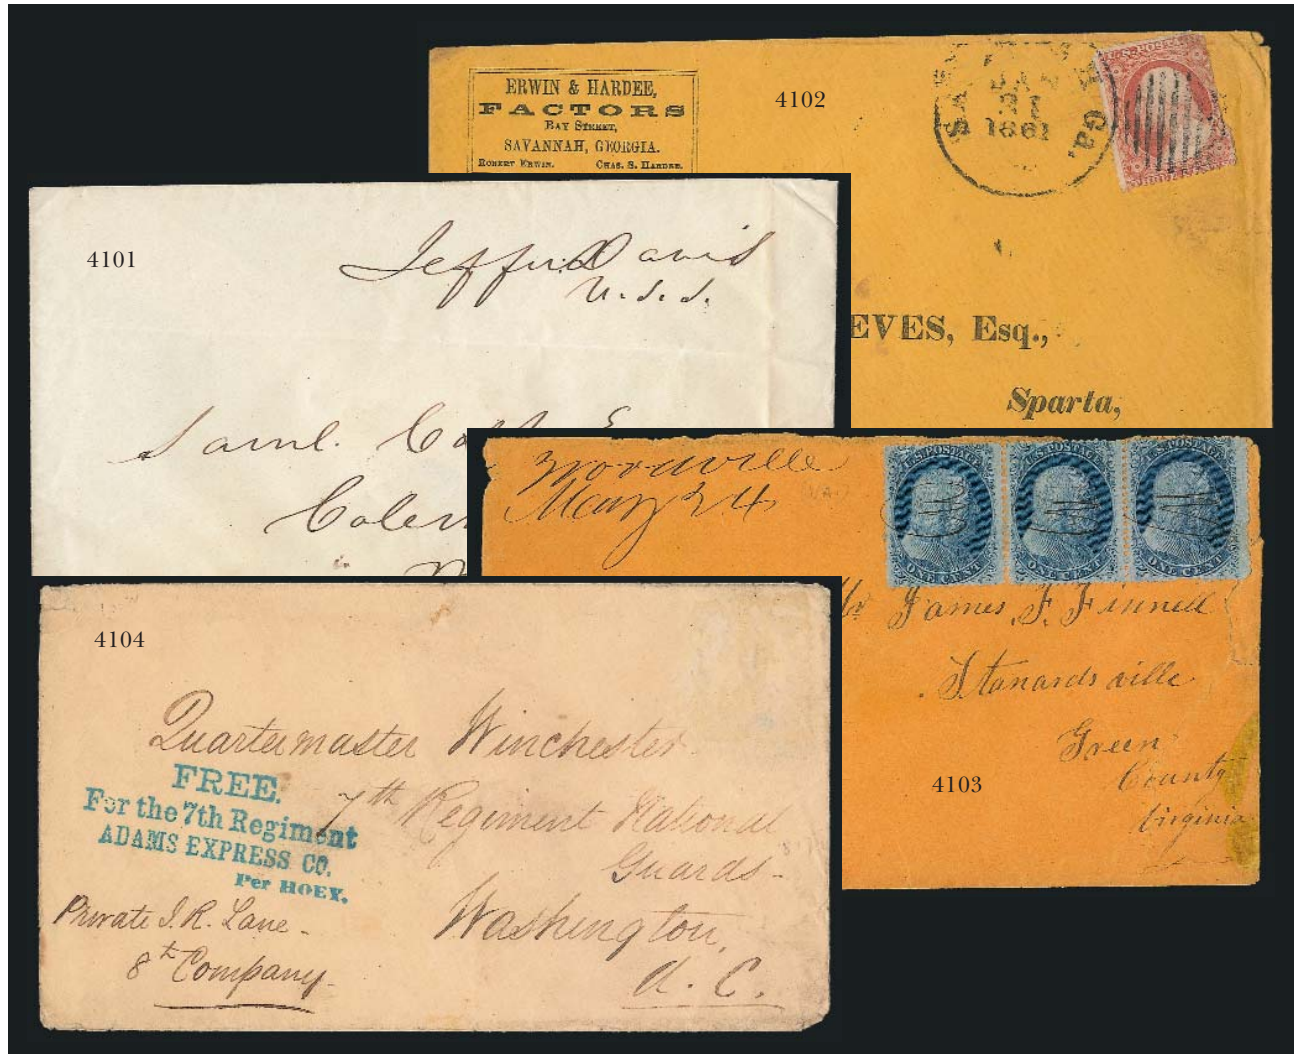 4102
ERWIN & HARDEE,
FACTORS
BAY STREET,
SAVANNAH, GEORGIA.
ROBERT ERWIN. CHAS. S. HARDEE.
Ga.
JAN
1861
U.S. POSTAGE
EVES, Esq.,
Sparta,
4101
Jeffn Davis
U.S.S.
Saml.
4103
May 24
U.S. POSTAGE
ONE CENT
U.S. POSTAGE
ONE CENT
U.S. POSTAGE
ONE CENT
Mr James F. Finnell
Stanardsville
Green
County
Virginia
4104
Quartermaster Winchester
7th Regiment National
Guards-
Washington,
D. C.
FREE.
For the 7th Regiment
ADAMS EXPRESS CO.
Per HOEY.
Private J. R. Lane-
8th Company-